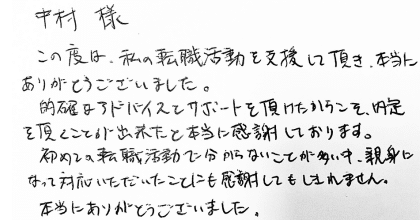 中村 様
この度は、私の転職活動を支援して頂き、本当に
ありがとうございました。
的確なアドバイスとサポートを頂けたからこそ、内定
を頂くことが出来たと本当に感謝しております。
初めての転職活動で分からないことが多い中、親身に
なって対応いただいたことにも感謝してもしきれません。
本当にありがとうございました。